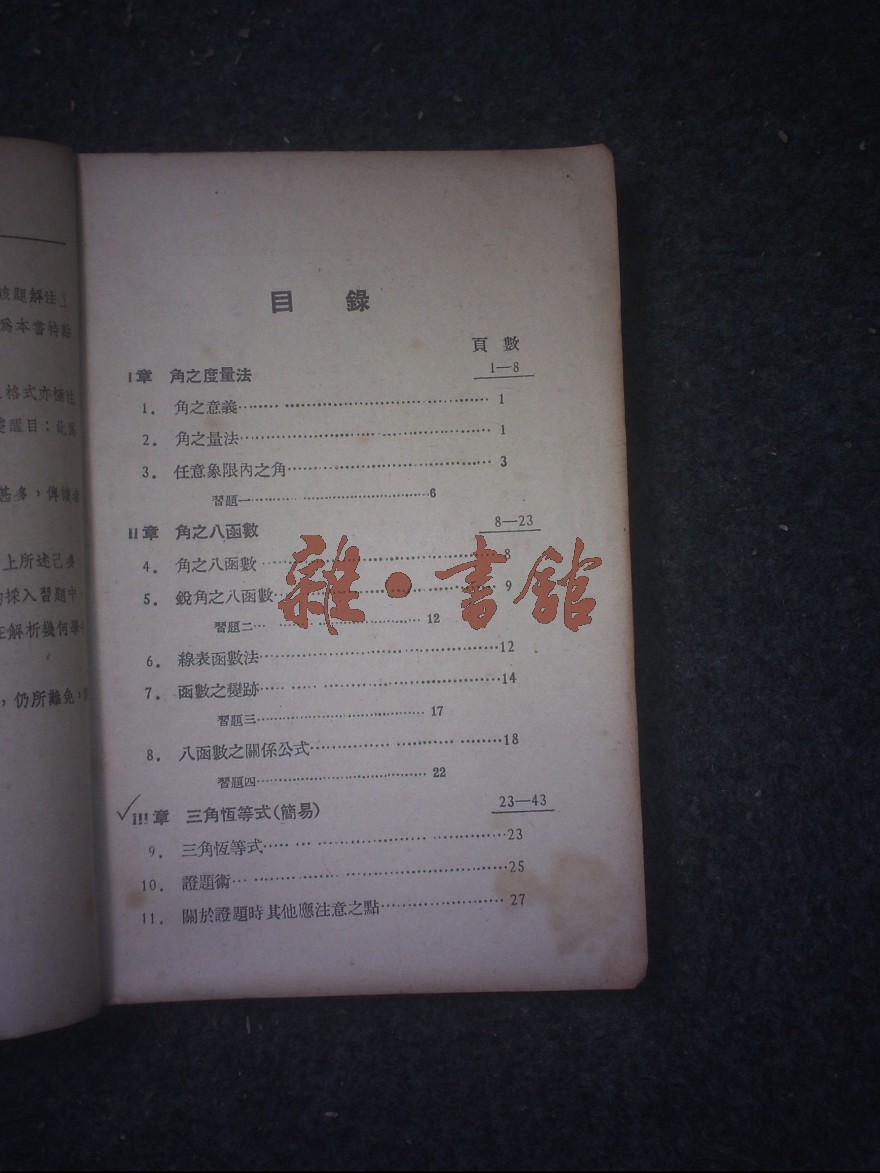 該題解法」
爲本書特點
格式亦
醒目：
甚多，俾讀者
上所述已
採入習題中
在解析幾何學
，仍所難免，
目 錄
頁 數
I章 角之度量法 1—8
1. 角之意義 1
2. 角之量法 1
3. 任意象限內之角 3
習題一 6
II章 角之八函數 8—23
4. 角之八函數 8
5. 銳角之八函數 9
習題二 12
6. 線表函數法 12
7. 函數之變跡 14
習題三 17
8. 八函數之關係公式 18
習題四 22
III章 三角恆等式(簡易) 23—43
9. 三角恆等式 23
10. 證題術 25
11. 關於證題時其他應注意之點 27
雜·書館